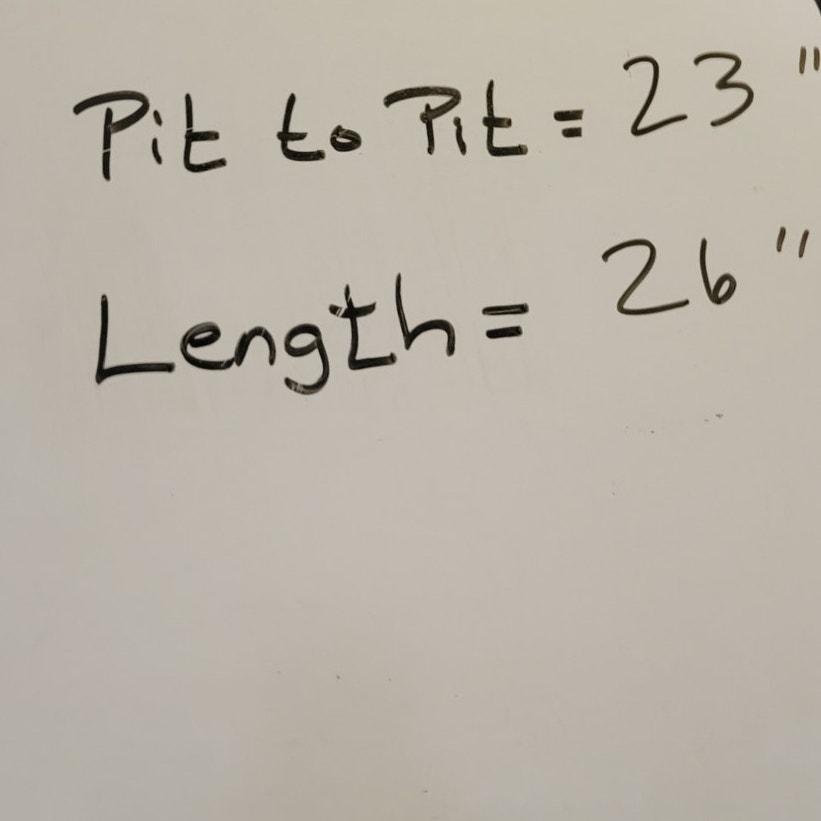 Pit to Pit = 23"
Length = 26"